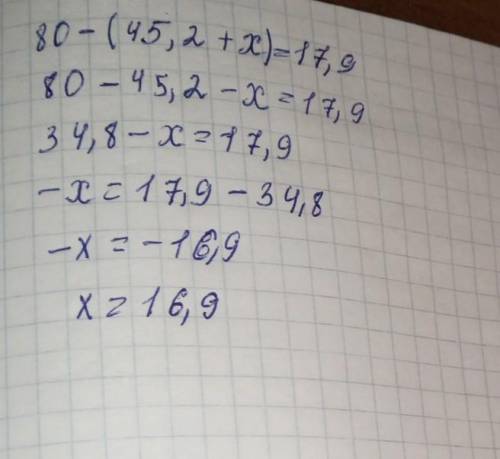 80-(45,2+x)=17,9
80-45,2-x=17,9
34,8-x=17,9
-x=17,9-34,8
-x=-16,9
x=16,9